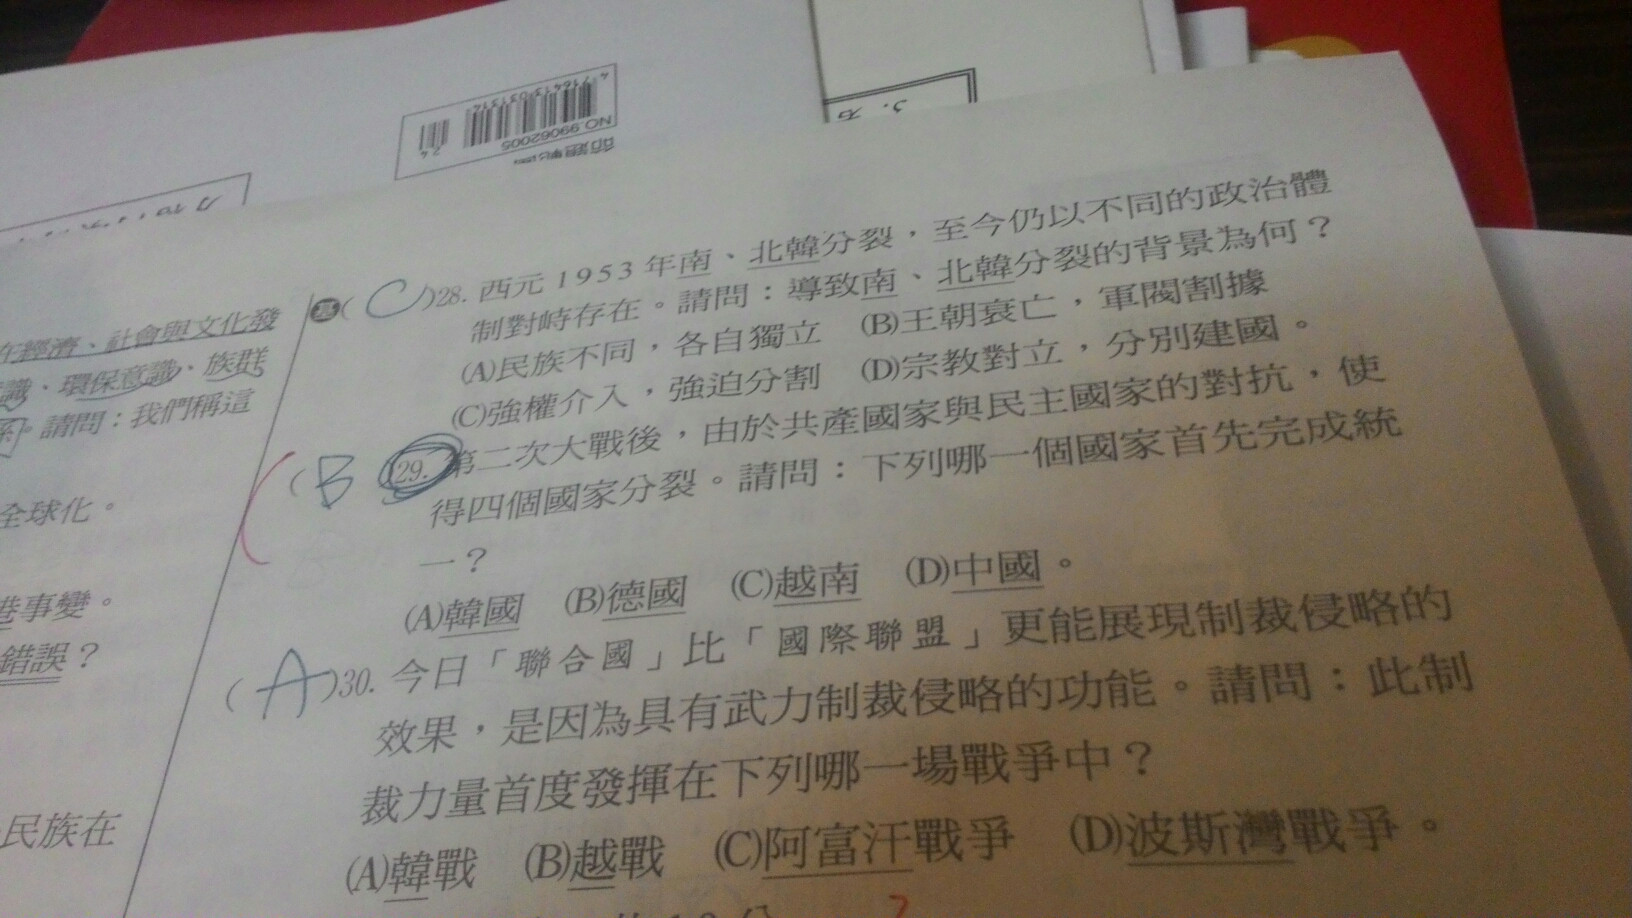 4716413031314
24
NO.99062005
3.若
在經濟、社會與文化發
識、環保意識、族群
係。請問：我們稱這
全球化。
港事變。
錯誤？
民族在
基( C )28. 西元1953年南、北韓分裂，至今仍以不同的政治體
制對峙存在。請問：導致南、北韓分裂的背景為何？
(A)民族不同，各自獨立 (B)王朝衰亡，軍閥割據
(C)強權介入，強迫分割 (D)宗教對立，分別建國。
( B )29. 第二次大戰後，由於共產國家與民主國家的對抗，使
得四個國家分裂。請問：下列哪一個國家首先完成統
一？
(A)韓國 (B)德國 (C)越南 (D)中國。
( A )30. 今日「聯合國」比「國際聯盟」更能展現制裁侵略的
效果，是因為具有武力制裁侵略的功能。請問：此制
裁力量首度發揮在下列哪一場戰爭中？
(A)韓戰 (B)越戰 (C)阿富汗戰爭 (D)波斯灣戰爭。